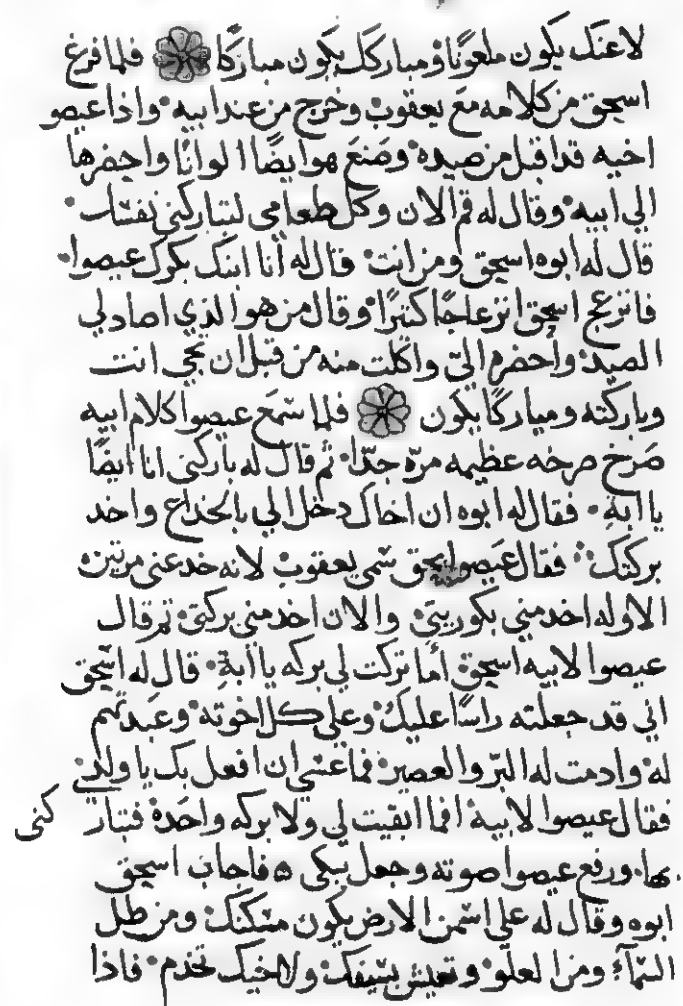 لاعنك يكون ملعونًا ومباركك يكون مباركًا فلما فرغ
اسحق من كلامه مع يعقوب وخرج من عند ابيه واذا عيصو
اخيه قد اقبل من صيده وصنع هو ايضًا الوانًا واحضرها
الي ابيه وقال له قم الان وكل طعامي لتباركني نفسك
قال له ابوه اسحق ومن انت قال له انا ابنك بكرك عيصوا
فانزعج اسحق انزعاجًا كثيرًا وقال من هو الذي اصاد لي
الصيد واحضره اليّ واكلت منه من قبل ان تجي انت
وباركته ومباركًا يكون فلما سمع عيصوا كلام ابيه
صرخ صرخه عظيمه مرّه جدّا ثم قال له باركني انا ايضًا
يا ابةِ فقال له ابوه ان اخاك دخل الي بالخداع واخد
بركتك فقال عيصوا بحق سمي يعقوب لانه خدعني مرتين
الاوله اخد مني بكوريتي والان اخد مني بركتي ثم قال
عيصوا لابيه اسحق اما تركت لي بركه يا ابةِ قال له اسحق
اني قد جعلته راسًا عليك وعلي كل اخوته وعبدتهم
له وادمت له البرّ والعصير فما عسي ان افعل بك يا ولدي
فقال عيصوا لابيه افما ابقيت لي ولا بركه واحده فتبار كني
بها ورفع عيصوا صوته وجعل يبكي فاجاب اسحق
ابوه وقال له علي اسمن الارض يكون مسكنك ومن طل
السمآء ومن العلو وتعيش بسيفك ولاخيك تخدم فاذا